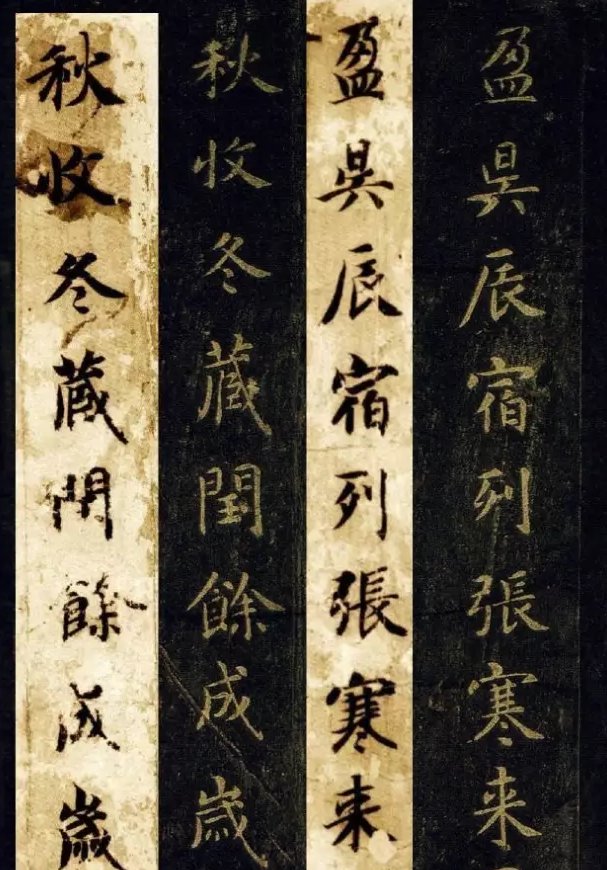 盈昃辰宿列張寒来
盈昃辰宿列張寒来
秋收冬藏閏餘成歲
秋收冬藏閏餘成歲